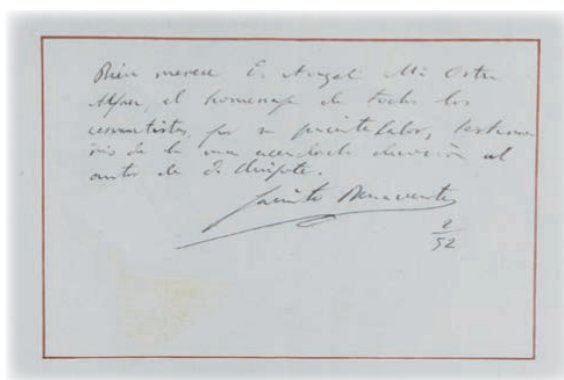 Bien merece D. Angel Mª Ortiz
Alfau, el homenaje de todos los
cervantistas, por su paciente labor, testimo
nio de la más acendrada devoción al
autor de D. Quijote.
Jacinto Benavente
2
52